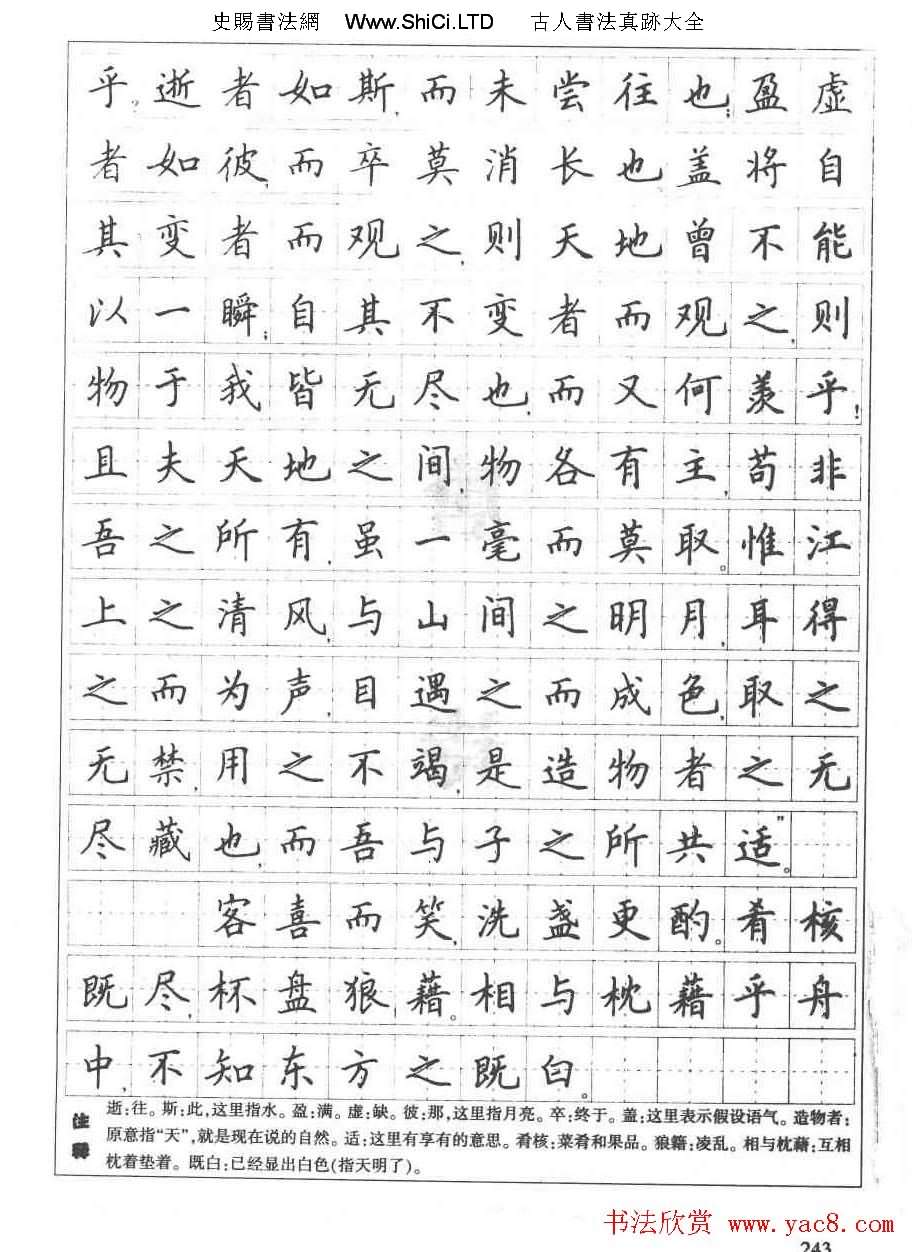 史賜書法網 Www.ShiCi.LTD 古人書法真跡大全
乎？逝者如斯,而未尝往也;盈虚
者如彼,而卒莫消长也。盖将自
其变者而观之,则天地曾不能
以一瞬;自其不变者而观之,则
物于我皆无尽也,而又何羡乎!
且夫天地之间,物各有主,苟非
吾之所有,虽一毫而莫取。惟江
上之清风,与山间之明月,耳得
之而为声,目遇之而成色,取之
无禁,用之不竭,是造物者之无
尽藏也,而吾与子之所共适。”
客喜而笑,洗盏更酌。肴核
既尽,杯盘狼藉。相与枕藉乎舟
中,不知东方之既白。
注释
逝:往。斯:此,这里指水。盈:满。虚:缺。彼:那,这里指月亮。卒:终于。盖:这里表示假设语气。造物者:
原意指“天”,就是现在说的自然。适:这里有享有的意思。肴核:菜肴和果品。狼籍:凌乱。相与枕藉:互相
枕着垫着。既白:已经显出白色(指天明了)。
书法欣赏 www.yac8.com
243